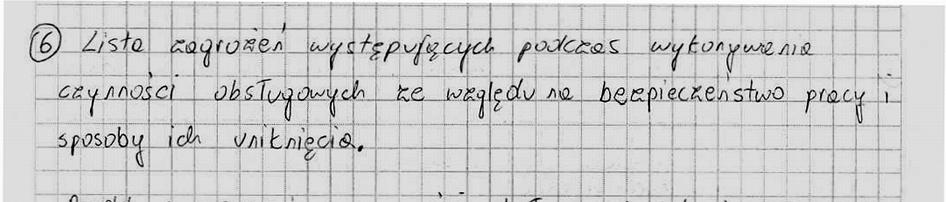 ⑥ Lista zagrożeń występujących podczas wykonywania
czynności obsługowych ze względu na bezpieczeństwo pracy i
sposoby ich uniknięcia.